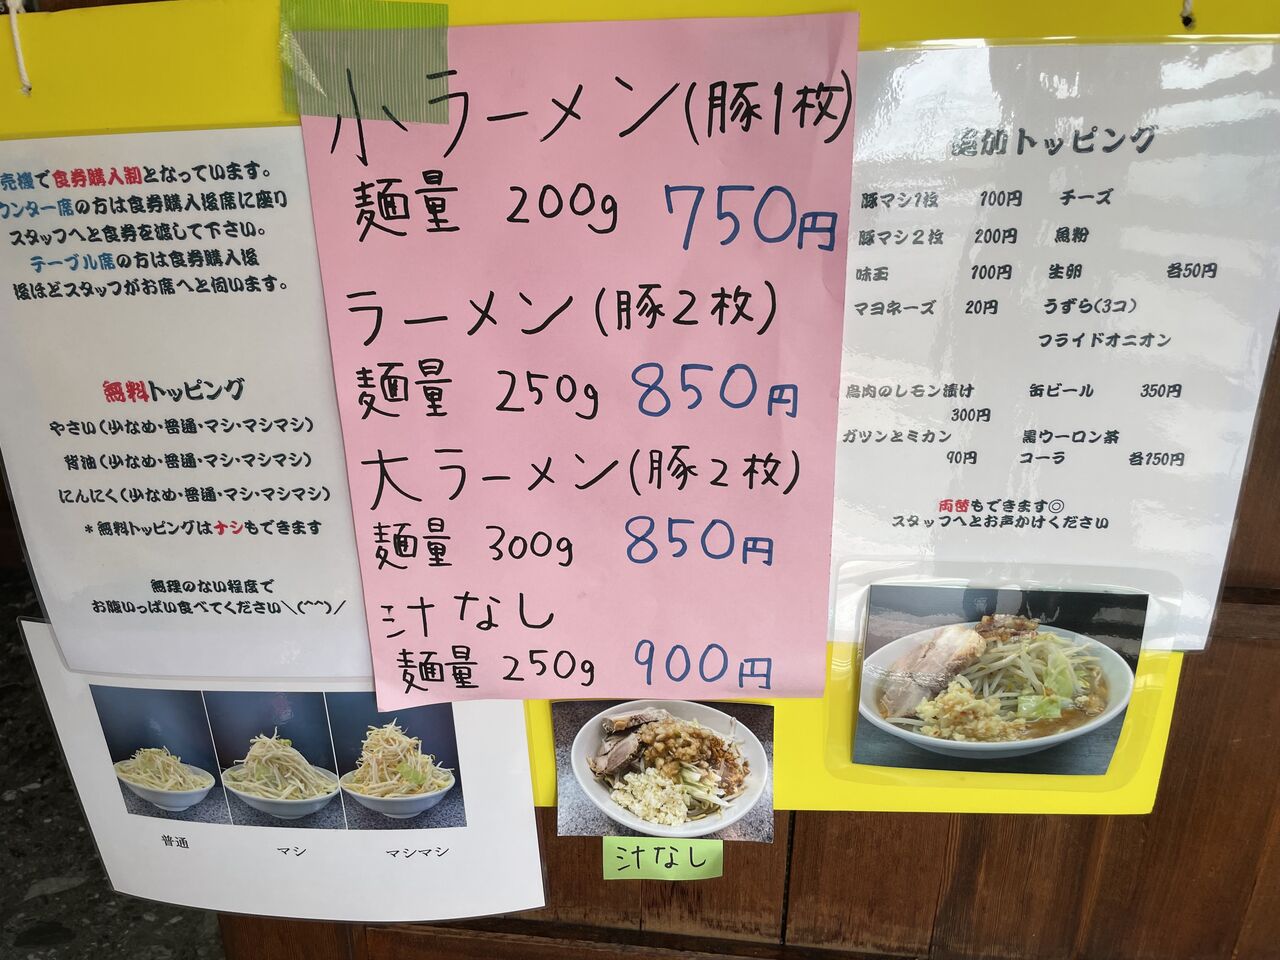 売機で食券購入制となっています。
ウンター席の方は食券購入後席に座り
スタッフへと食券を渡して下さい。
テーブル席の方は食券購入後
後ほどスタッフがお席へと伺います。
無料トッピング
やさい(少なめ・普通・マシ・マシマシ)
背油(少なめ・普通・マシ・マシマシ)
にんにく(少なめ・普通・マシ・マシマシ)
*無料トッピングはナシもできます
無理のない程度で
お腹いっぱい食べてください＼(^^)／
普通 マシ マシマシ
小ラーメン(豚1枚)
麺量 200g 750円
ラーメン(豚2枚)
麺量 250g 850円
大ラーメン(豚2枚)
麺量 300g 850円
汁なし
麺量 250g 900円
汁なし
追加トッピング
豚マシ1枚 100円 チーズ
豚マシ2枚 200円 魚粉
味玉 100円 生卵 各50円
マヨネーズ 20円 うずら(3コ)
フライドオニオン
鳥肉のレモン漬け 缶ビール 350円
300円
ガツンとミカン 黒ウーロン茶
90円 コーラ 各150円
両替もできます◎
スタッフへとお声かけください